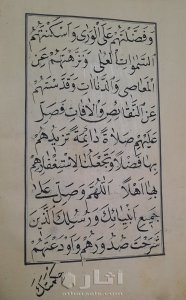 وَفَضَّلْتَهُمْ عَلَى الْوَرَى وَاَسْكَنْتَهُمُ
السَّمٰوَاتِ الْعُلٰى وَنَزَّهْتَهُمْ عَنِ
الْمَعَاصِى وَالدَّنَاآتِ وَقَدَّسْتَهُمْ
عَنِ النَّقَائِصِ وَالْاٰفَاتِ فَصَلِّ
عَلَيْهِمْ صَلَاةً دَائِمَةً تَزِيدُهُمْ
بِهَا فَضْلًا وَتَجْعَلُنَا لِاسْتِغْفَارِهِمْ
بِهَا اَهْلًا اَللّٰهُمَّ وَصَلِّ عَلٰى
جَمِيعِ اَنْبِيَائِكَ وَرُسُلِكَ الَّذِينَ
شَرَحْتَ صُدُورَهُمْ وَاَوْدَعْتَهُمْ
حكمتك